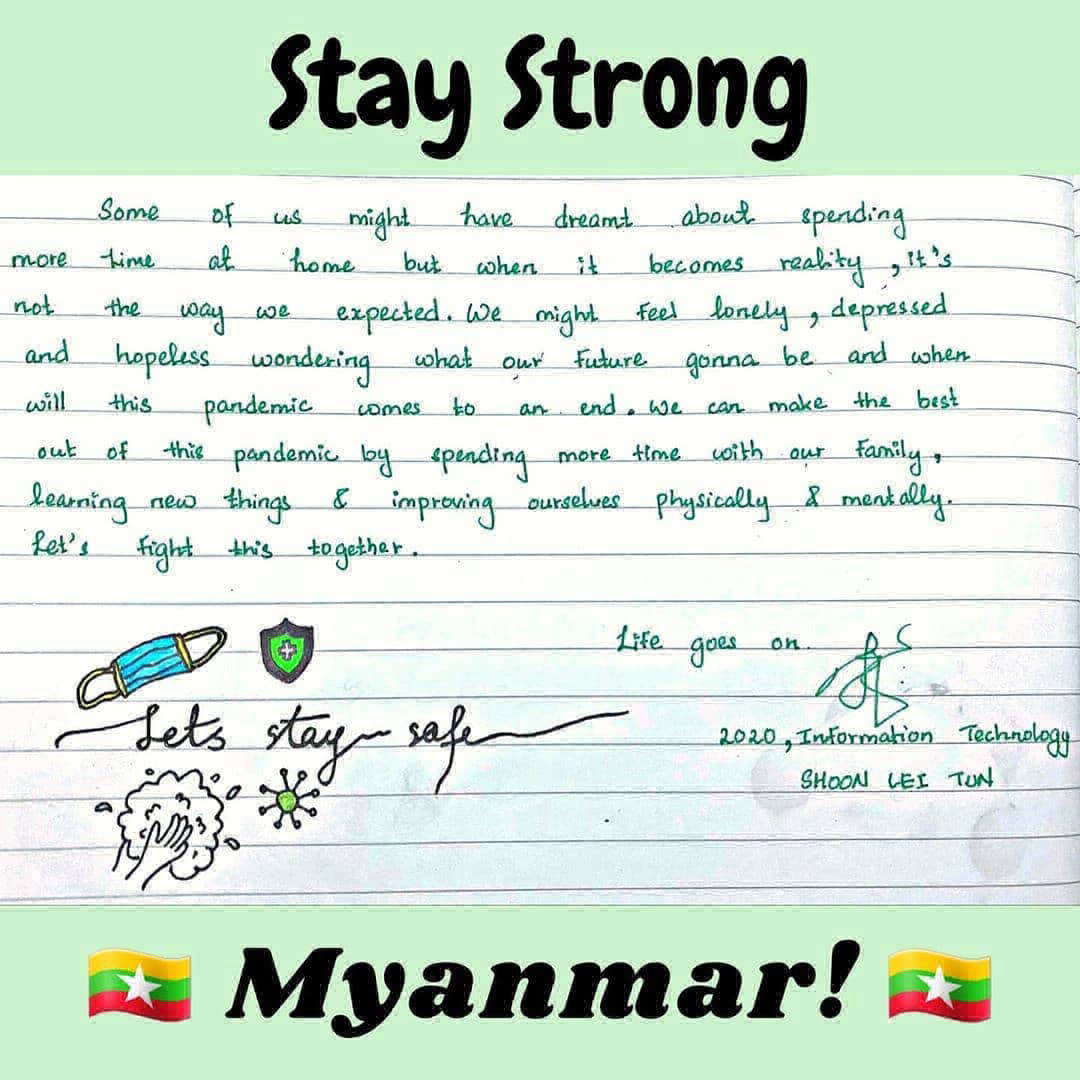 Stay Strong
Some of us might have dreamt about spending
more time at home but when it becomes reality, it's
not the way we expected. We might feel lonely, depressed
and hopeless wondering what our future gonna be and when
will this pandemic comes to an end. We can make the best
out of this pandemic by spending more time with our family,
learning new things & improving ourselves physically & mentally.
Let's fight this together.
Life goes on.
Lets stay safe
2020, Information Technology
SHOON LEI TUN
Myanmar!